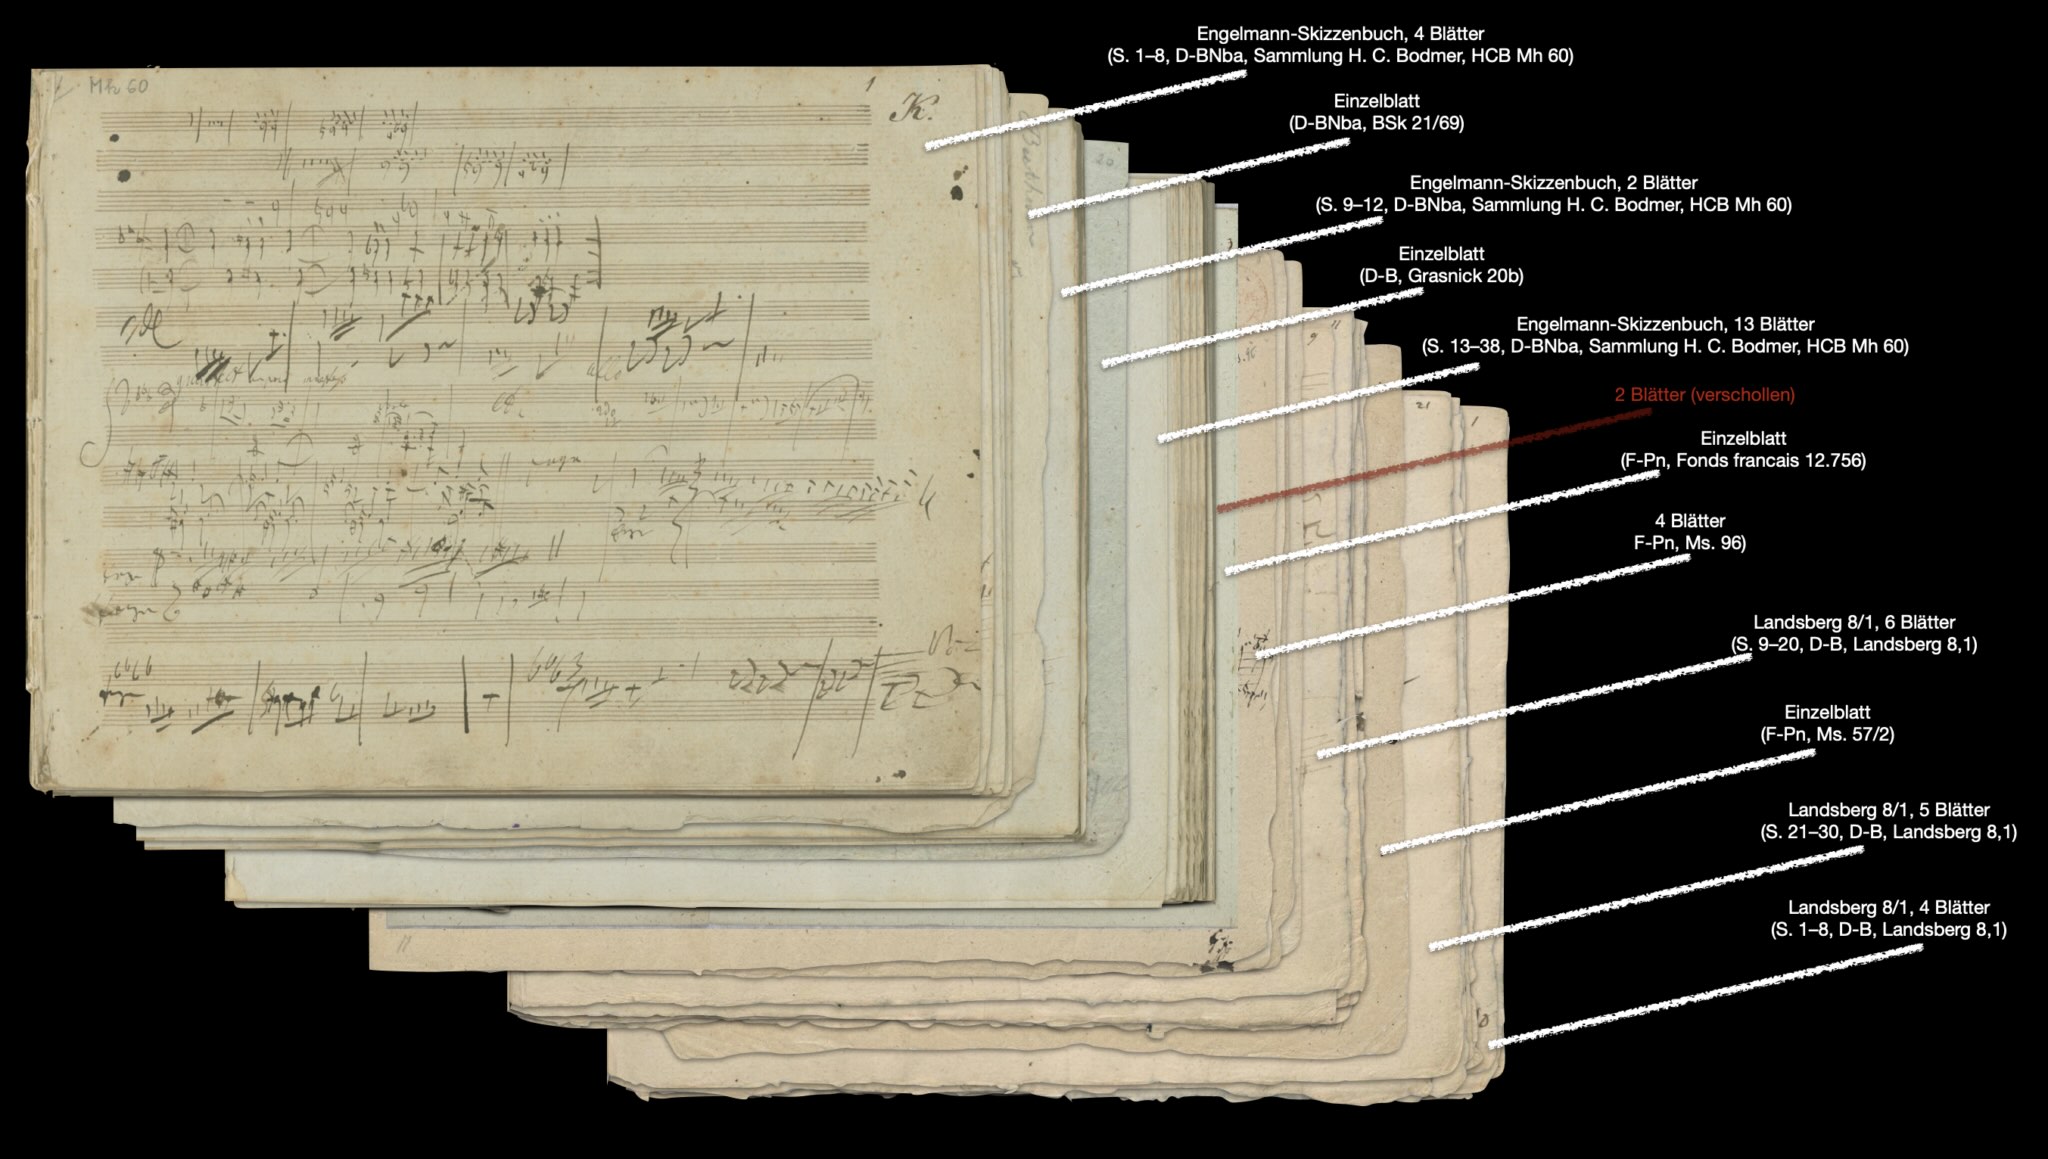 Engelmann-Skizzenbuch, 4 Blätter
(S. 1–8, D-BNba, Sammlung H. C. Bodmer, HCB Mh 60)
Einzelblatt
(D-BNba, BSk 21/69)
Engelmann-Skizzenbuch, 2 Blätter
(S. 9–12, D-BNba, Sammlung H. C. Bodmer, HCB Mh 60)
Einzelblatt
(D-B, Grasnick 20b)
Engelmann-Skizzenbuch, 13 Blätter
(S. 13–38, D-BNba, Sammlung H. C. Bodmer, HCB Mh 60)
2 Blätter (verschollen)
Einzelblatt
(F-Pn, Fonds francais 12.756)
4 Blätter
F-Pn, Ms. 96)
Landsberg 8/1, 6 Blätter
(S. 9–20, D-B, Landsberg 8,1)
Einzelblatt
(F-Pn, Ms. 57/2)
Landsberg 8/1, 5 Blätter
(S. 21–30, D-B, Landsberg 8,1)
Landsberg 8/1, 4 Blätter
(S. 1–8, D-B, Landsberg 8,1)
Mh 60
1
K.
20
9
11
21
1